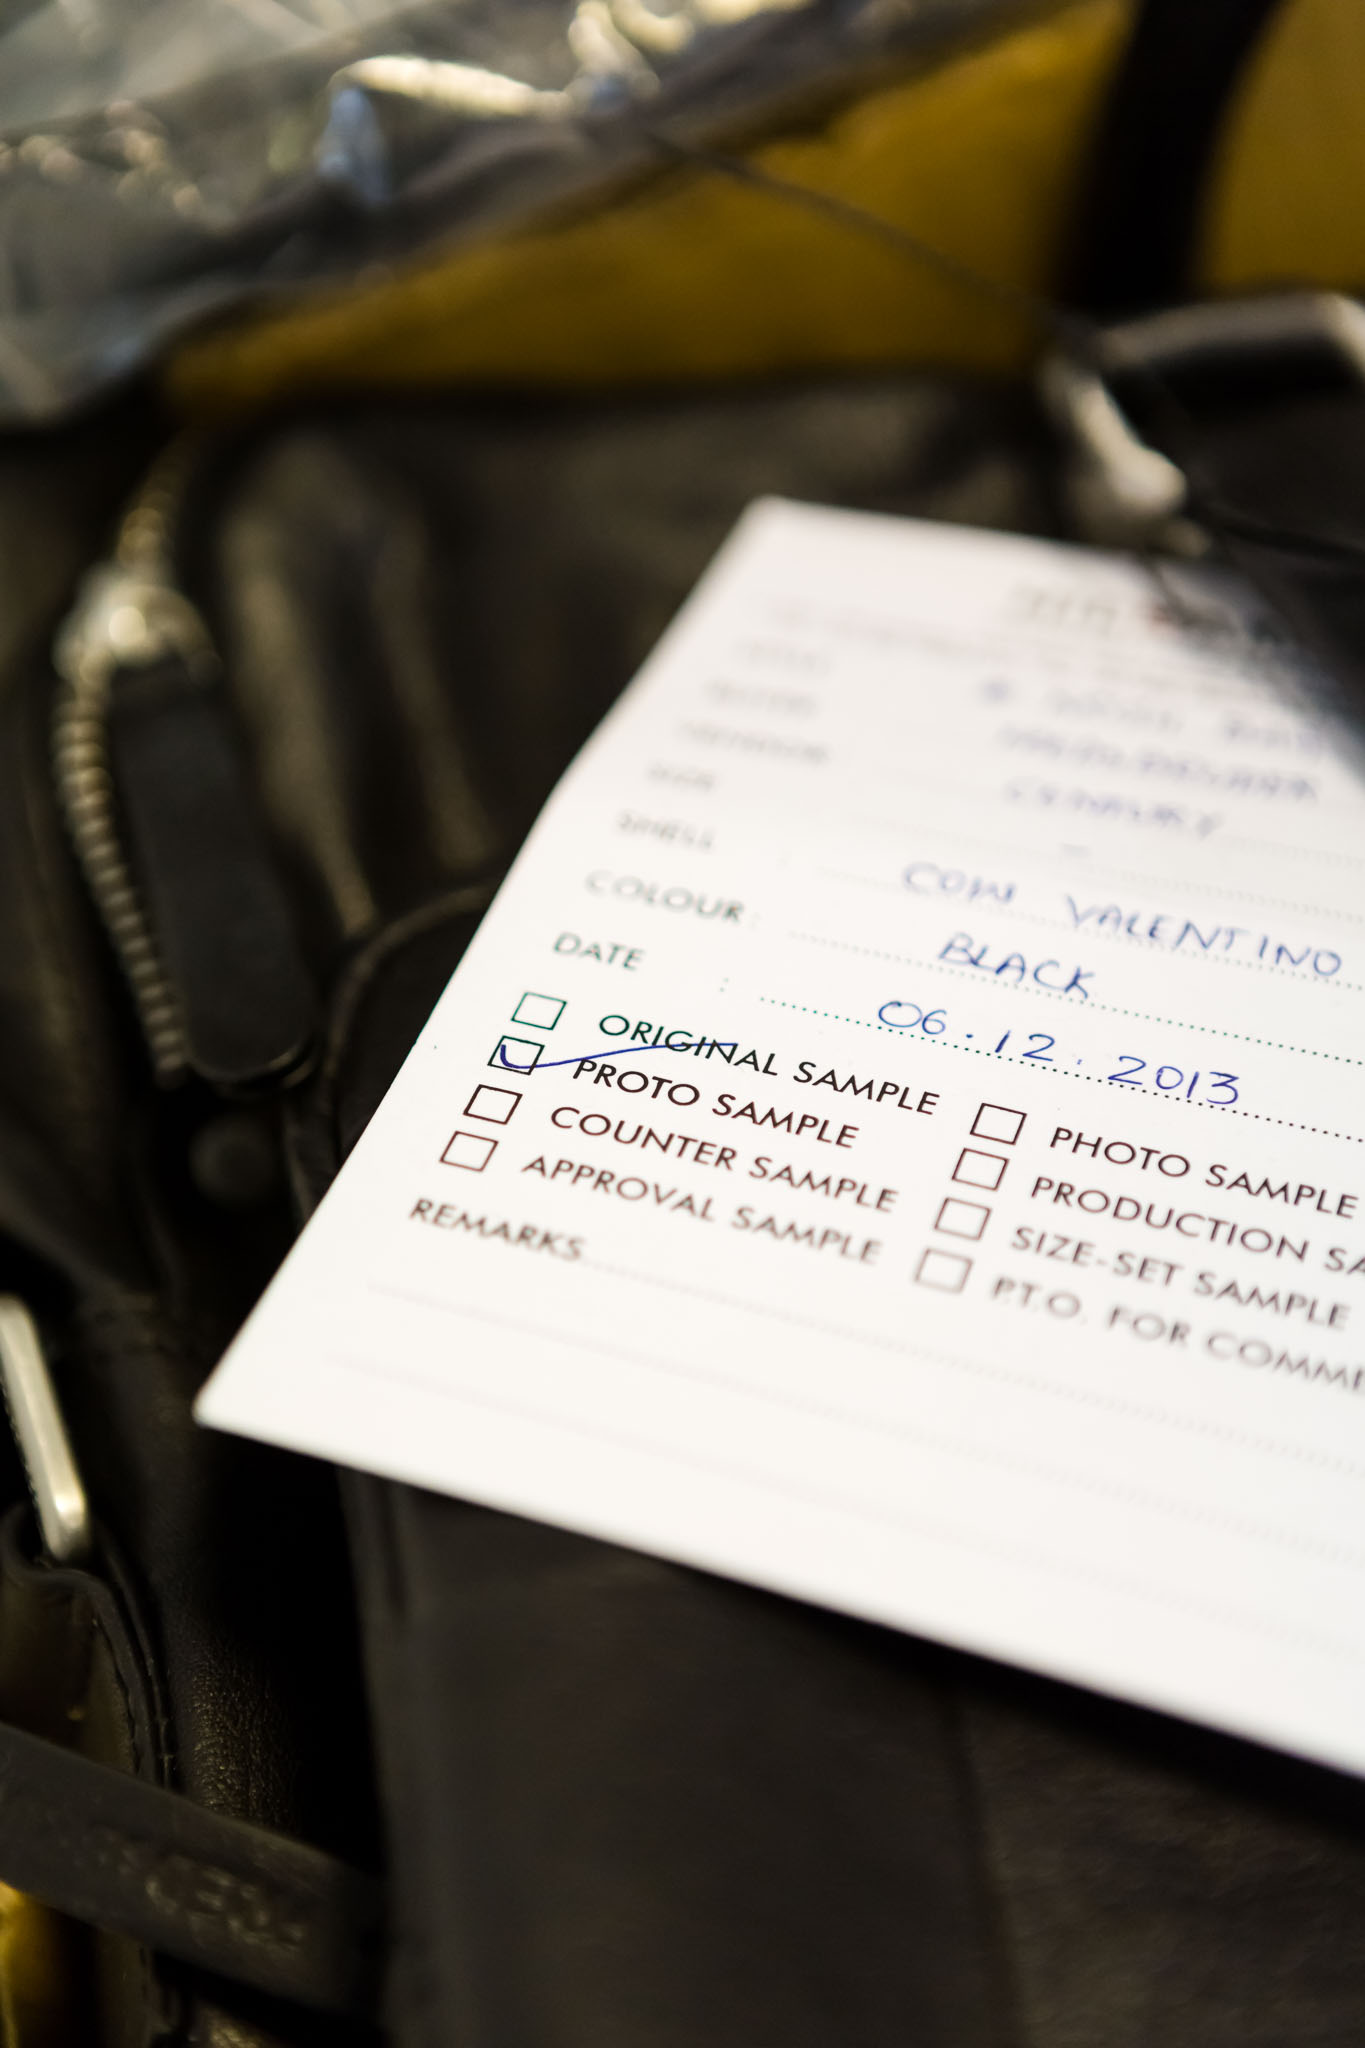 SIZE
SHELL : COW VALENTINO
COLOUR : BLACK
DATE : 06.12.2013
ORIGINAL SAMPLE
PROTO SAMPLE
COUNTER SAMPLE
APPROVAL SAMPLE
PHOTO SAMPLE
PRODUCTION SA
SIZE-SET SAMPLE
P.T.O. FOR COMME
REMARKS